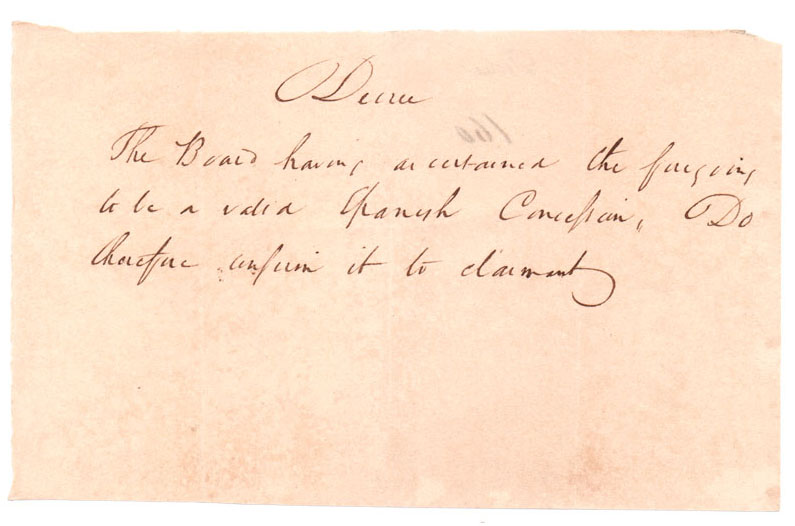 Decree
The Board having ascertained the foregoing
to be a valid Spanish Concession, Do
therefore confirm it to claimant